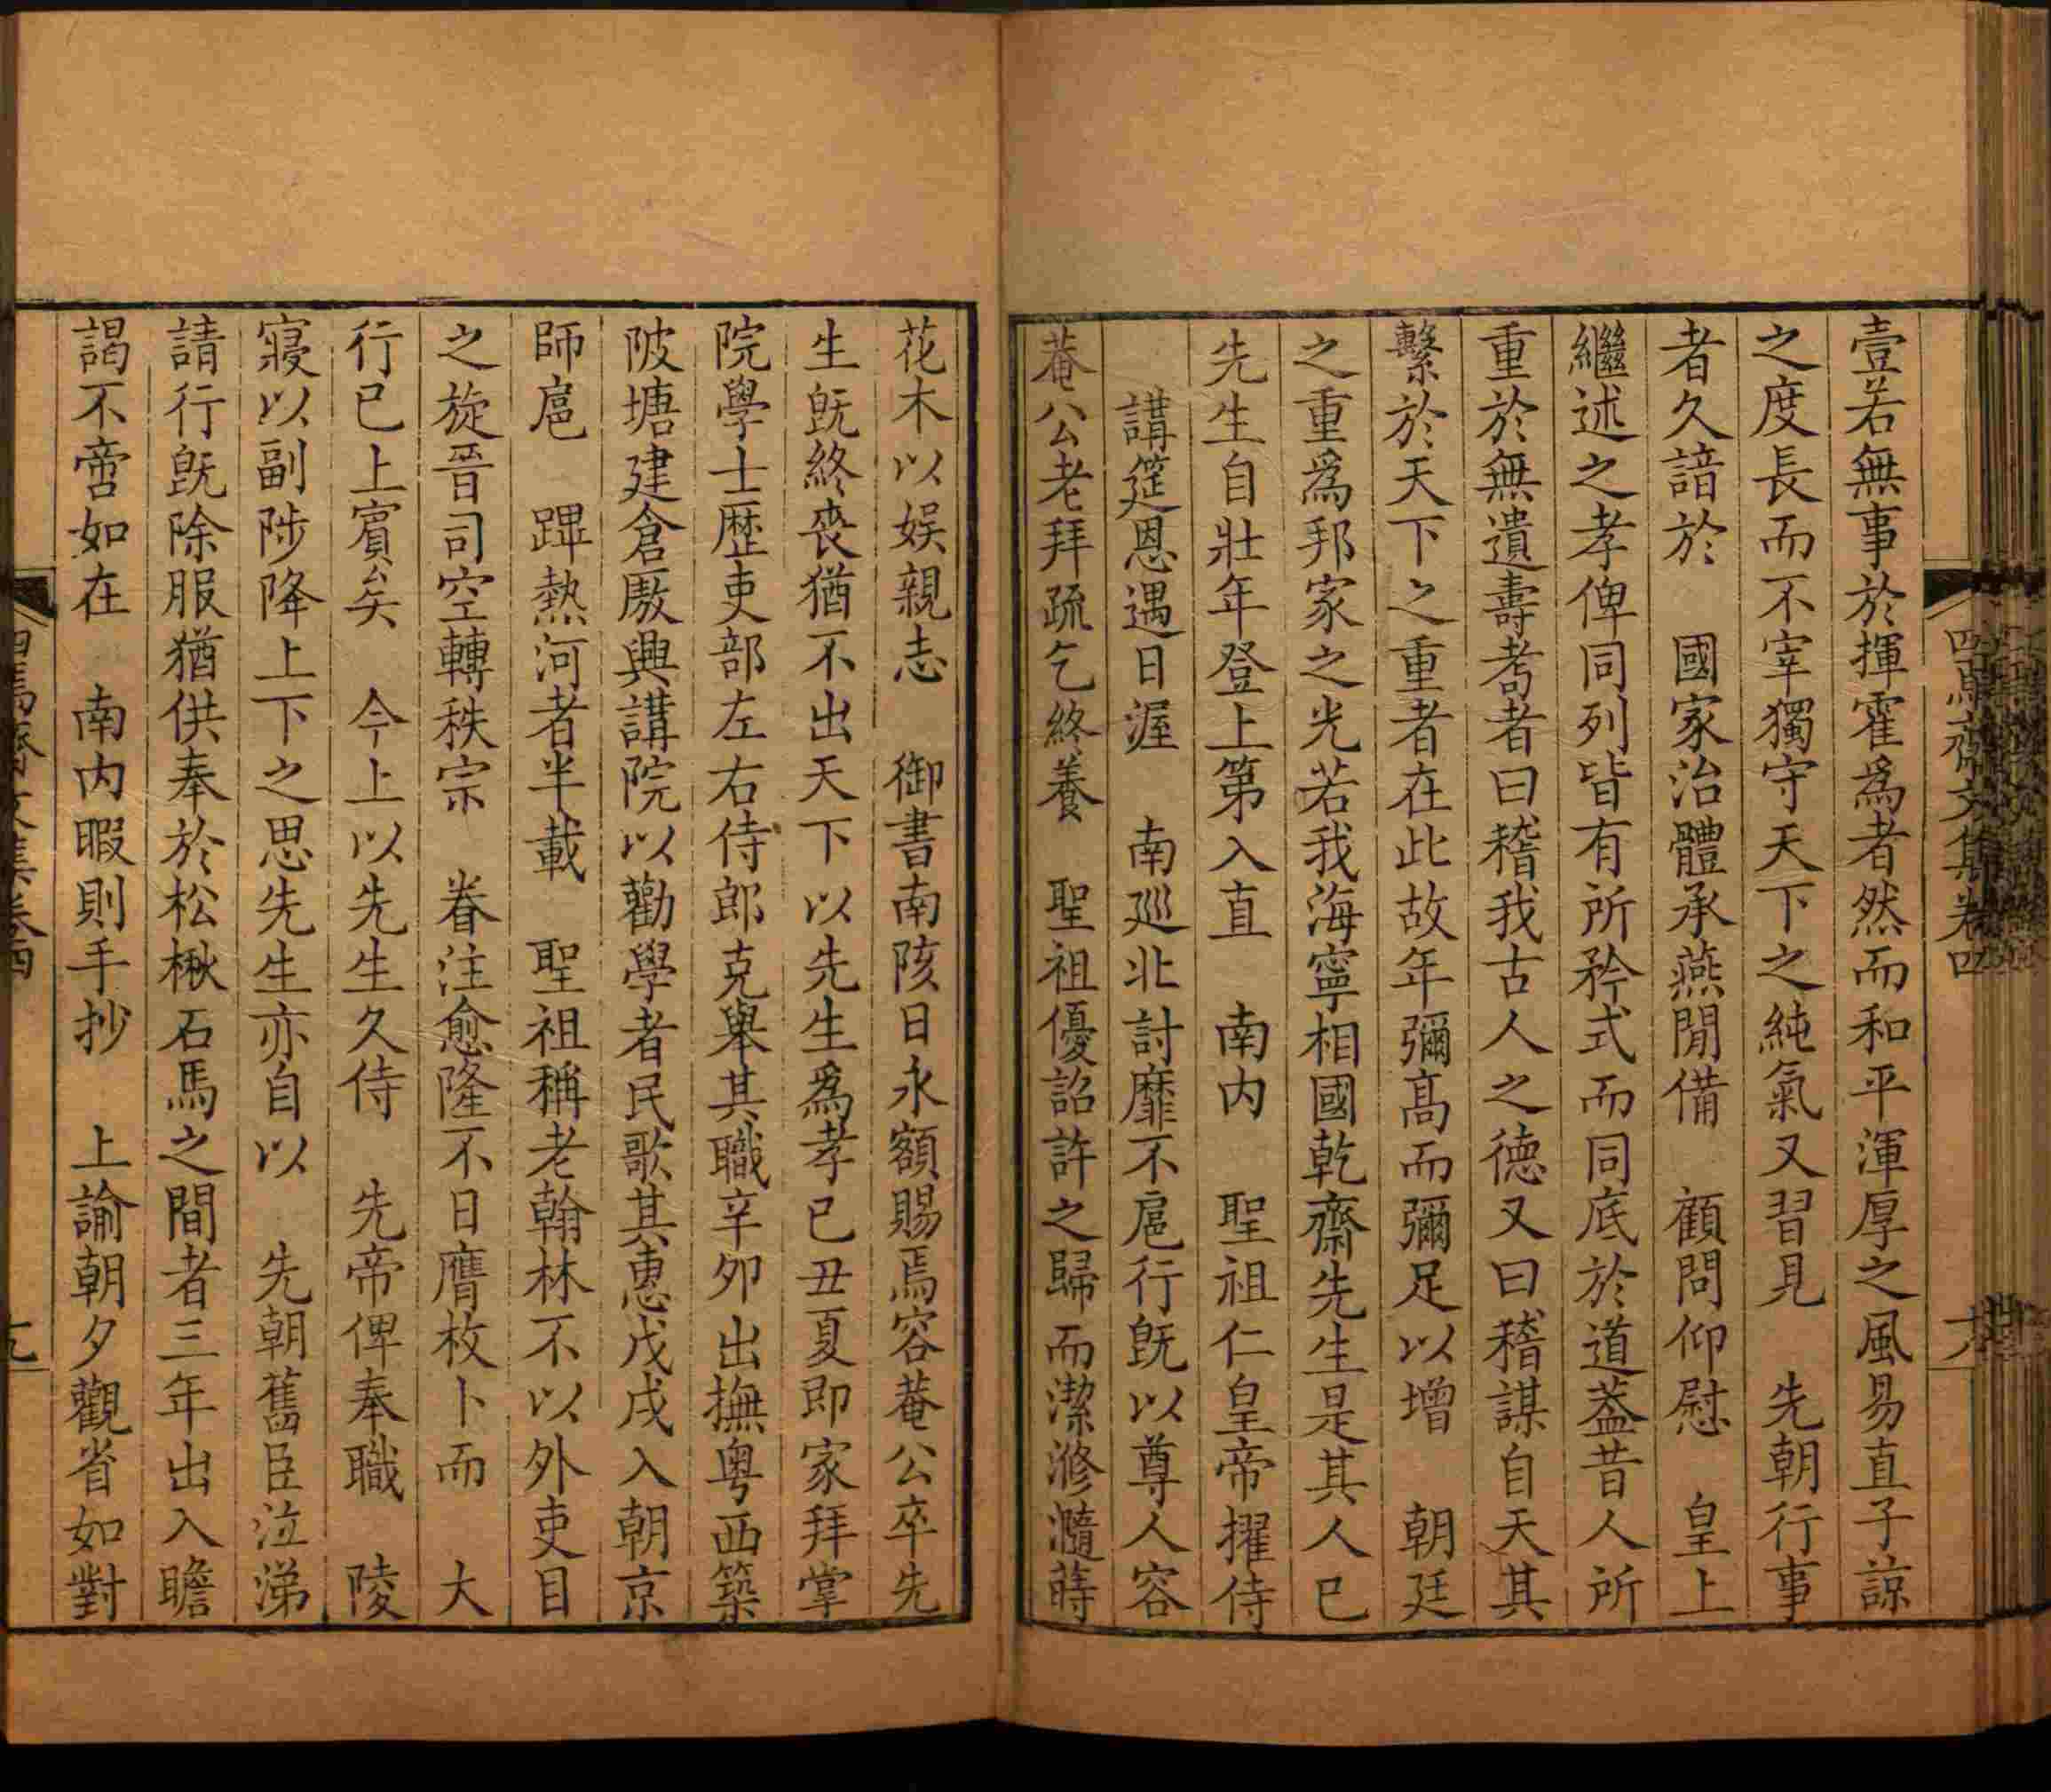 壹若無事於揮霍爲者然而和平渾厚之風易直子諒
之度長而不宰獨守天下之純氣又習見　先朝行事
者久諳於　國家治體承燕閒備　顧問仰慰　皇上
繼述之孝俾同列皆有所矜式而同底於道葢昔人所
重於無遺壽耇者曰稽我古人之德又曰稽謀自天其
繫於天下之重者在此故年彌高而彌足以增　朝廷
之重爲邦家之光若我海寧相國乾齋先生是其人已
先生自壯年登上第入直　南内　聖祖仁皇帝擢侍
講筵恩遇日渥　南廵北討靡不扈行旣以尊人容
菴公老拜疏乞終養　聖祖優詔許之歸而潔滫瀡蒔
四焉齋文集卷四
十八
花木以娱親志　御書南陔日永額賜焉容菴公卒先
生旣終喪猶不出天下以先生爲孝已丑夏即家拜掌
院學士歴吏部左右侍郎克舉其職辛卯出撫粤西築
陂塘建倉厫興講院以勸學者民歌其惠戊戌入朝京
師扈　蹕熱河者半載　聖祖稱老翰林不以外吏目
之旋晉司空轉秩宗　眷注愈隆不日膺枚卜而　大
行已上賓矣　今上以先生久侍　先帝俾奉職　陵
寢以副陟降上下之思先生亦自以　先朝舊臣泣涕
請行旣除服猶供奉於松楸石馬之間者三年出入瞻
謁不啻如在　南内暇則手抄　上諭朝夕觀省如對
四焉齋文集卷四
十九